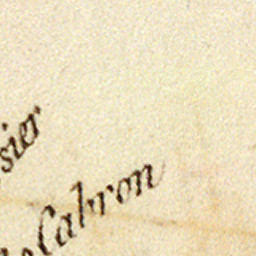 sier
Cabron